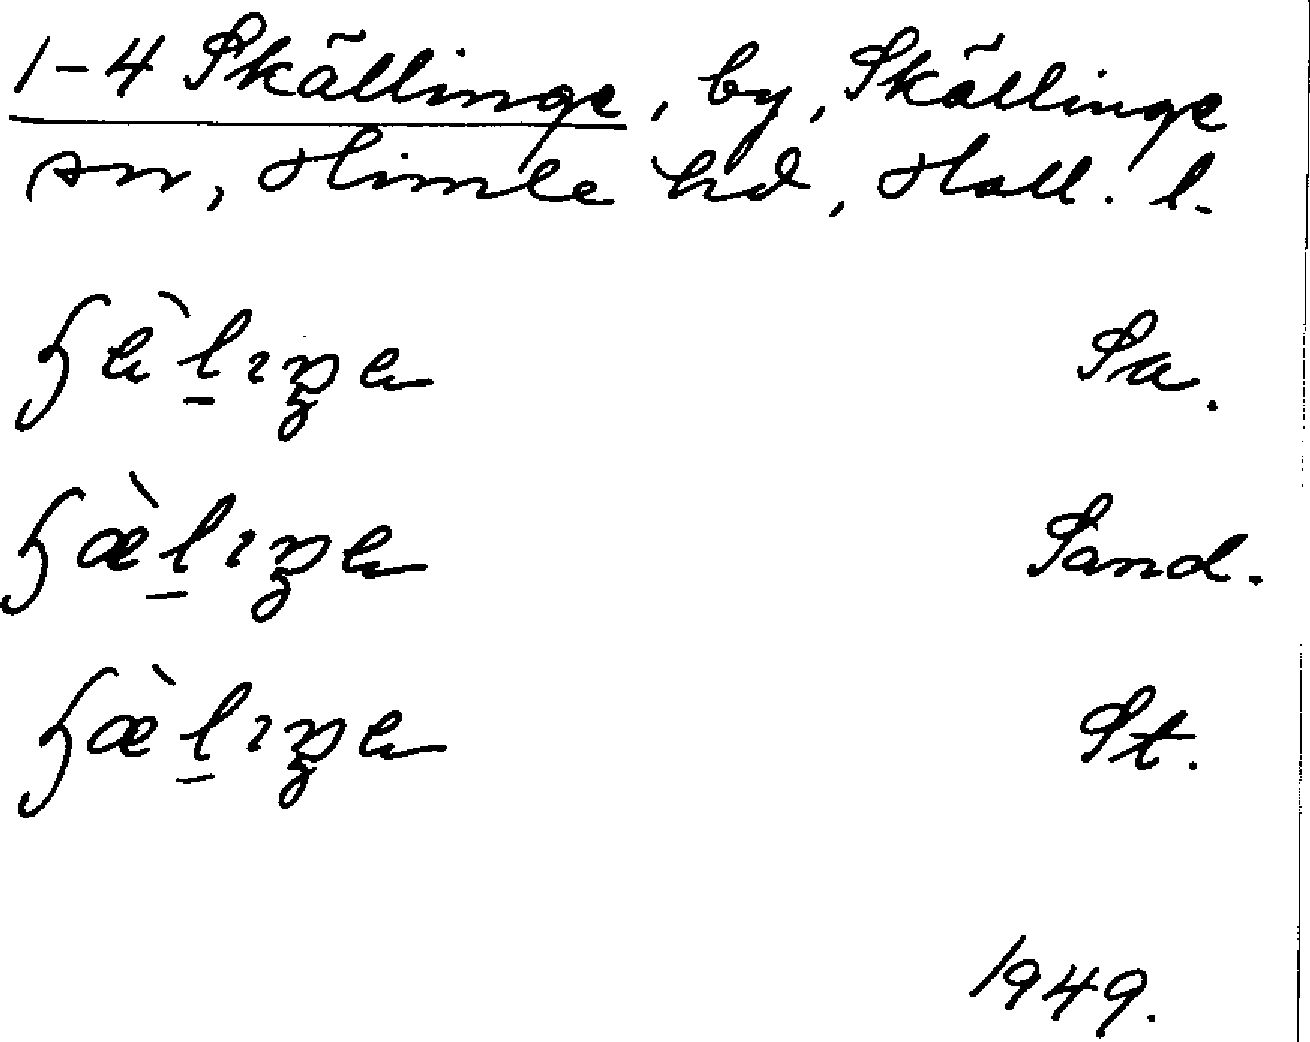 1-4 Skällinge, by, Skällinge
sn, Himle hd, Hall. l.
ɧè̀l̲ıŋə Sa.
ɧæ̀l̲ıŋə Sand.
ɧæ̀l̲ıŋə St.
1949.